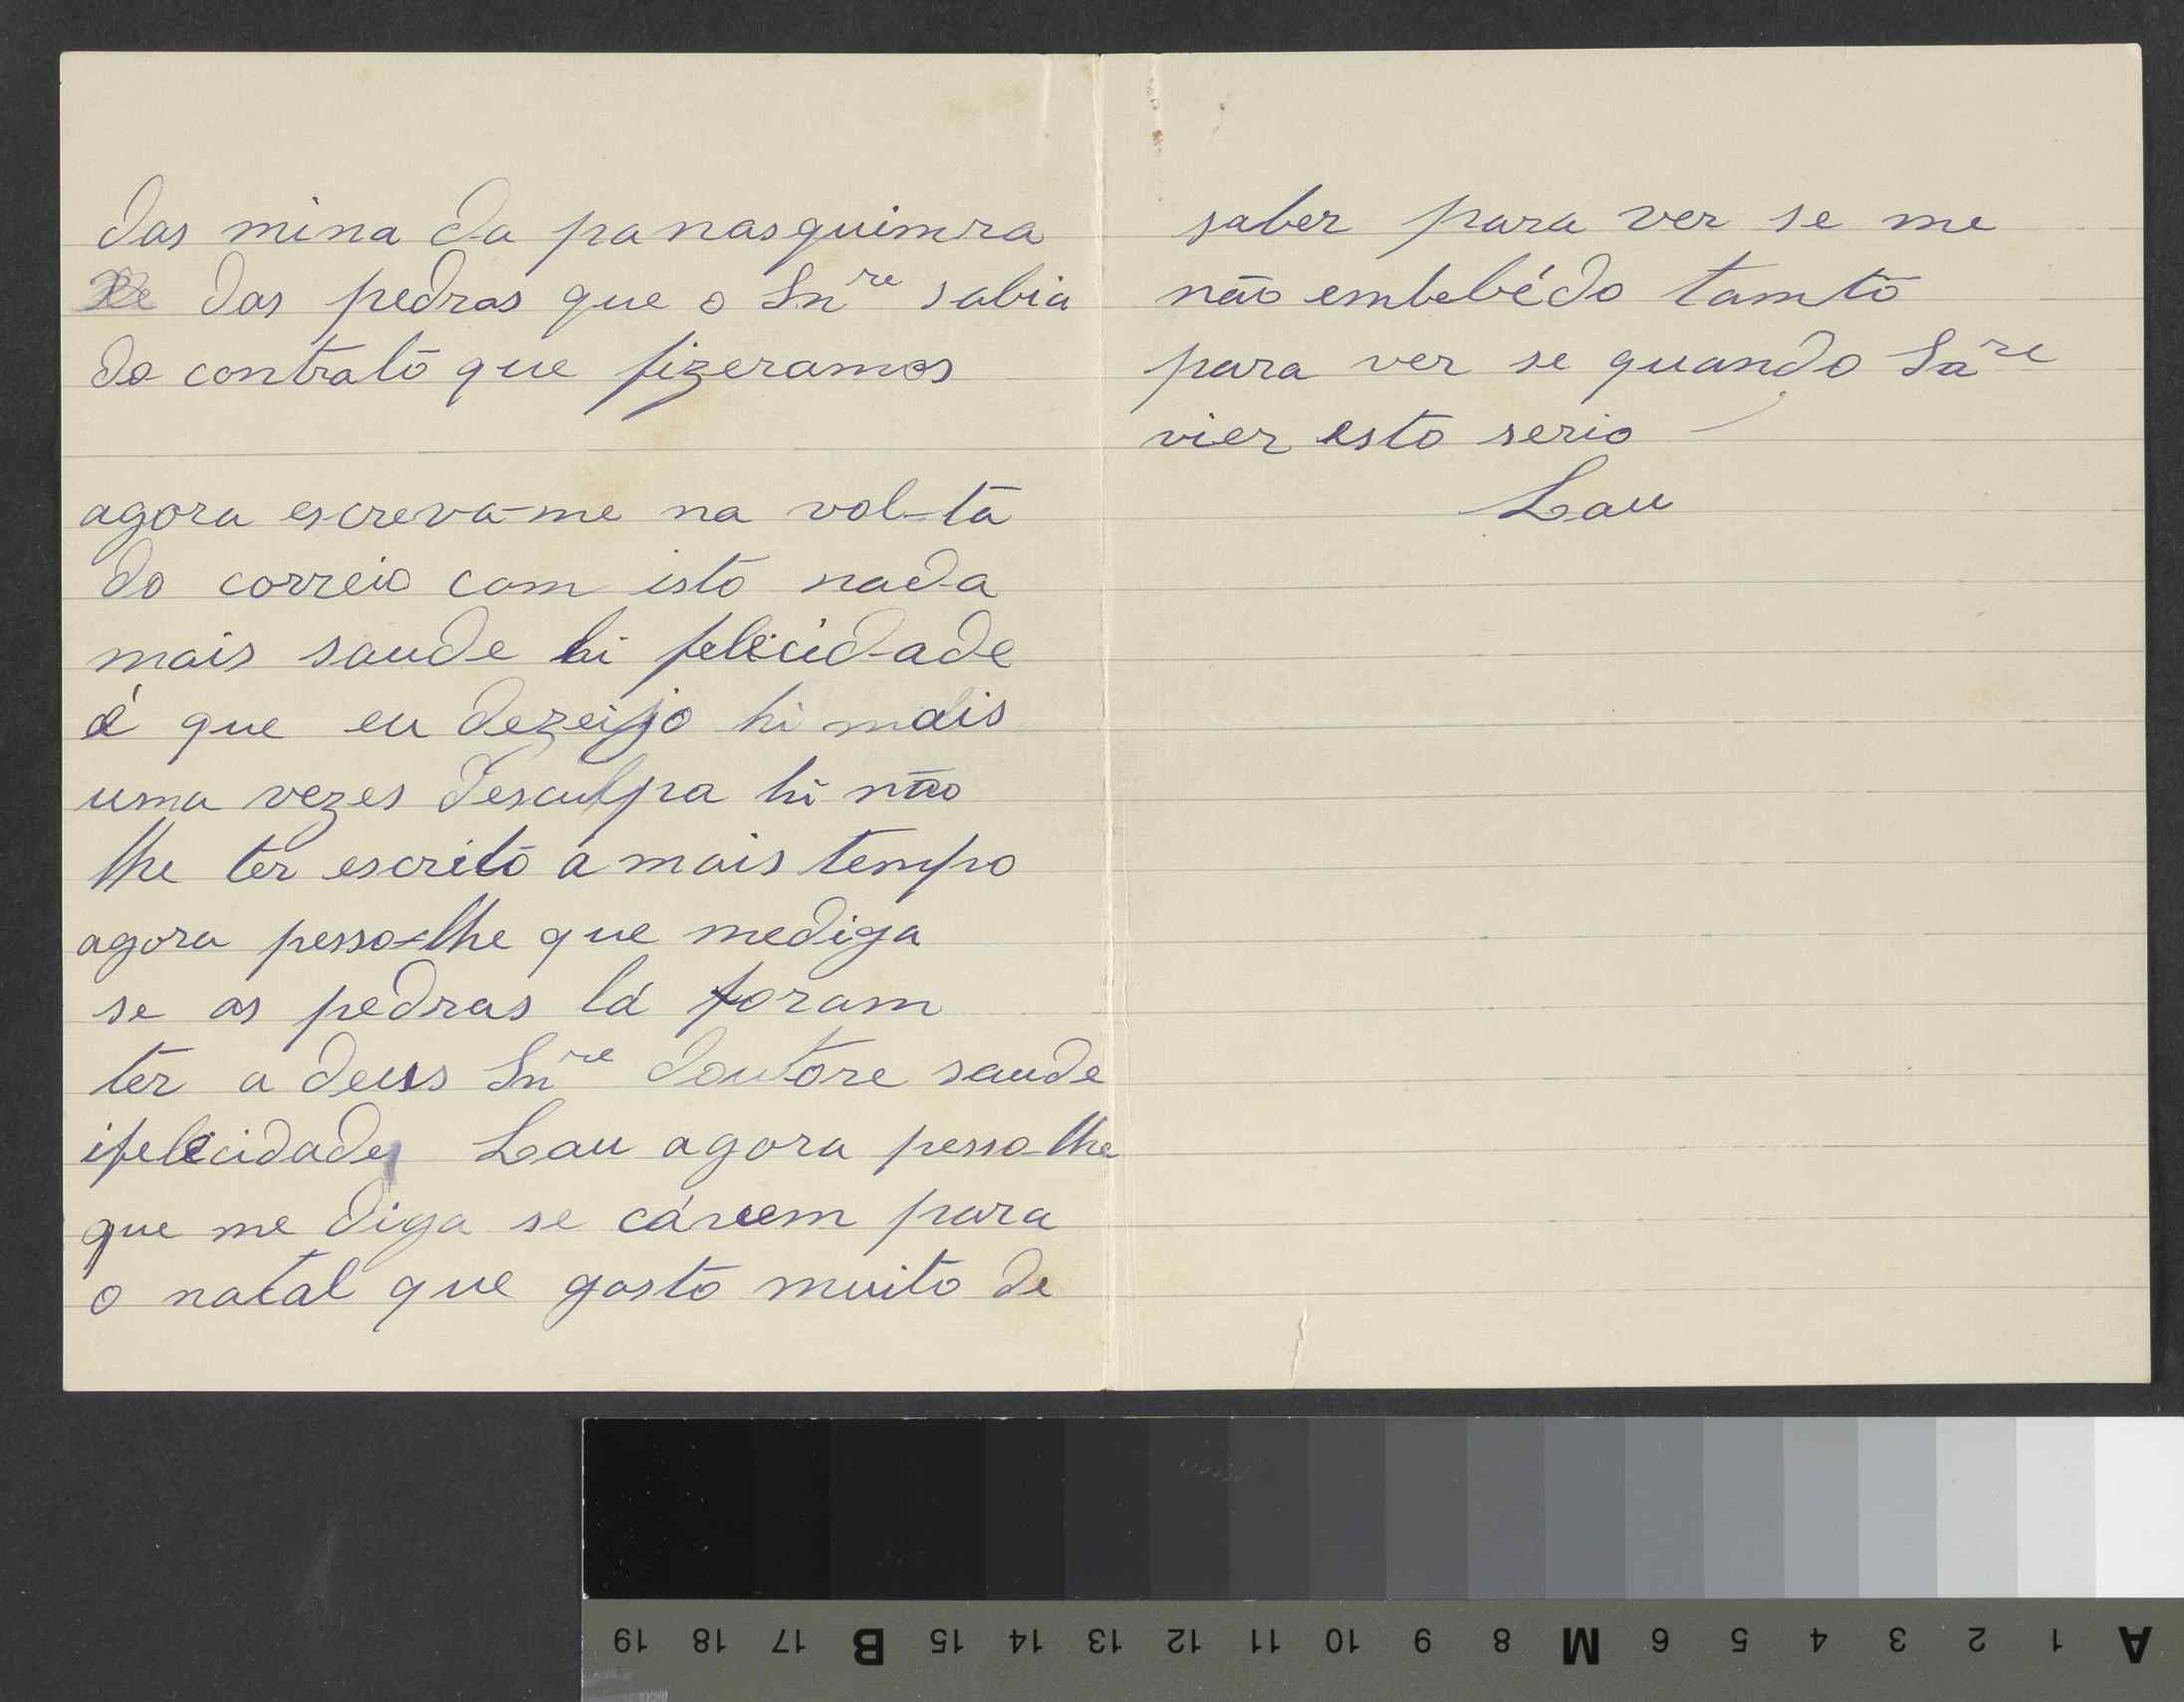 das mina da panasqueimra
das pedras que o Snre sabia
do contrato que fizeramos
agora escreva-me na vol-ta
do correio com isto nada
mais saude hi felicid-ade
é que eu dezeijo hi mais
uma vezes desculpa hi não
lhe ter escrito a mais tempo
agora pesso-lhe que mediga
se as pedras lá foram
ter a deus Snre doutore saude
ifelicidade Lau agora pesso-lhe
que me diga se cávem para
o natal que gosto muito de
saber para ver se me
não embebédo tamto
para ver se quando Sare
vier esto serio
Lau
19 18 17 B 15 14 13 12 11 10 9 8 M 6 5 4 3 2 1 A